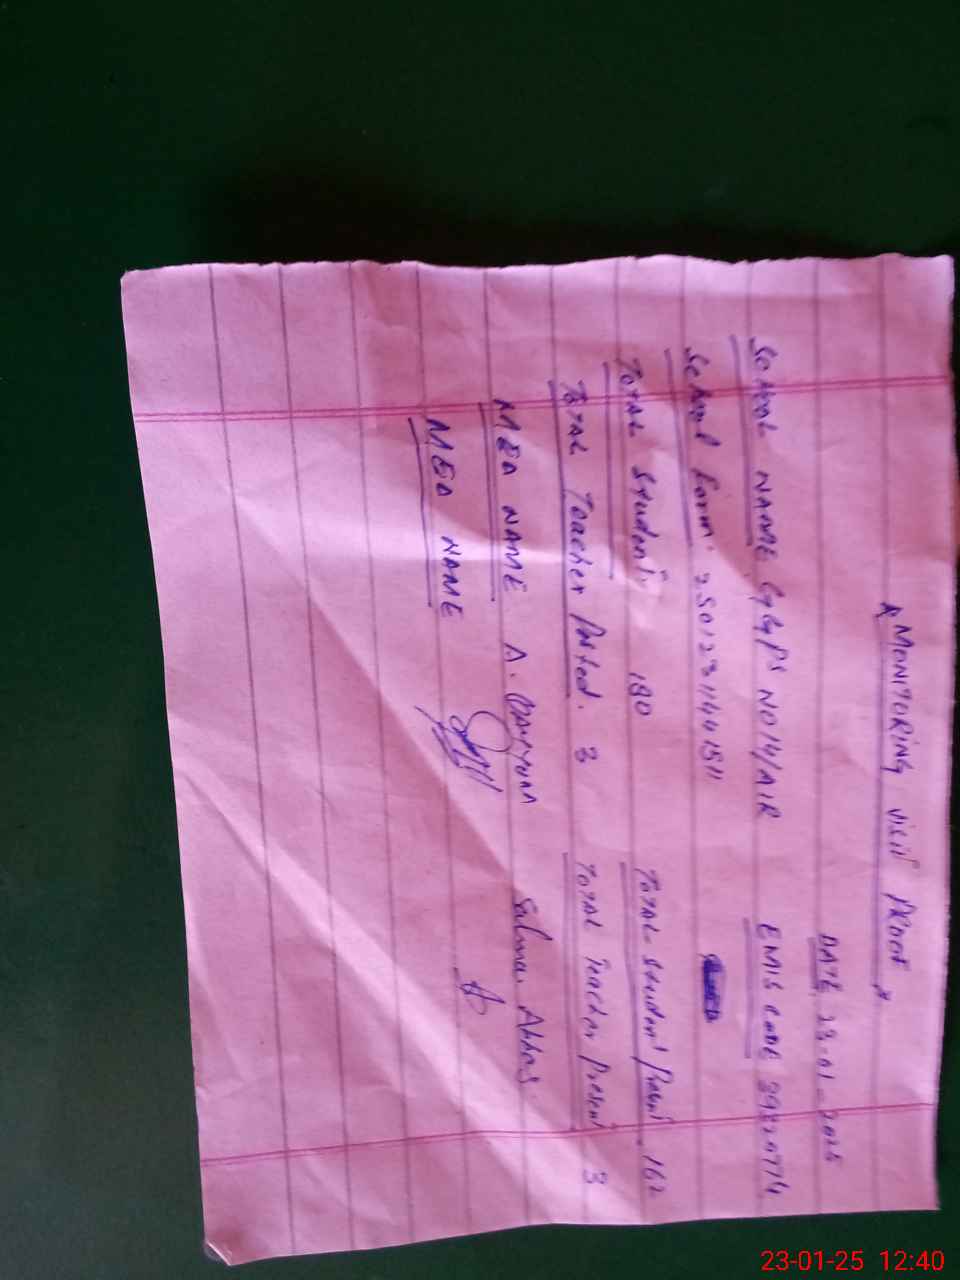 * MONITORING visit PROOF *
DATE 23-01-2025
SCHOOL NAME GGPS NO14/AIR EMIS CODE
School Form. 2501231441511
TOTAL Student. 180 TOTAL Student Present. 162
TOTAL Teacher Posted. 3 TOTAL Teacher Present 3
MEA NAME A. Salma Abbas.
MEA NAME
23-01-25 12:40